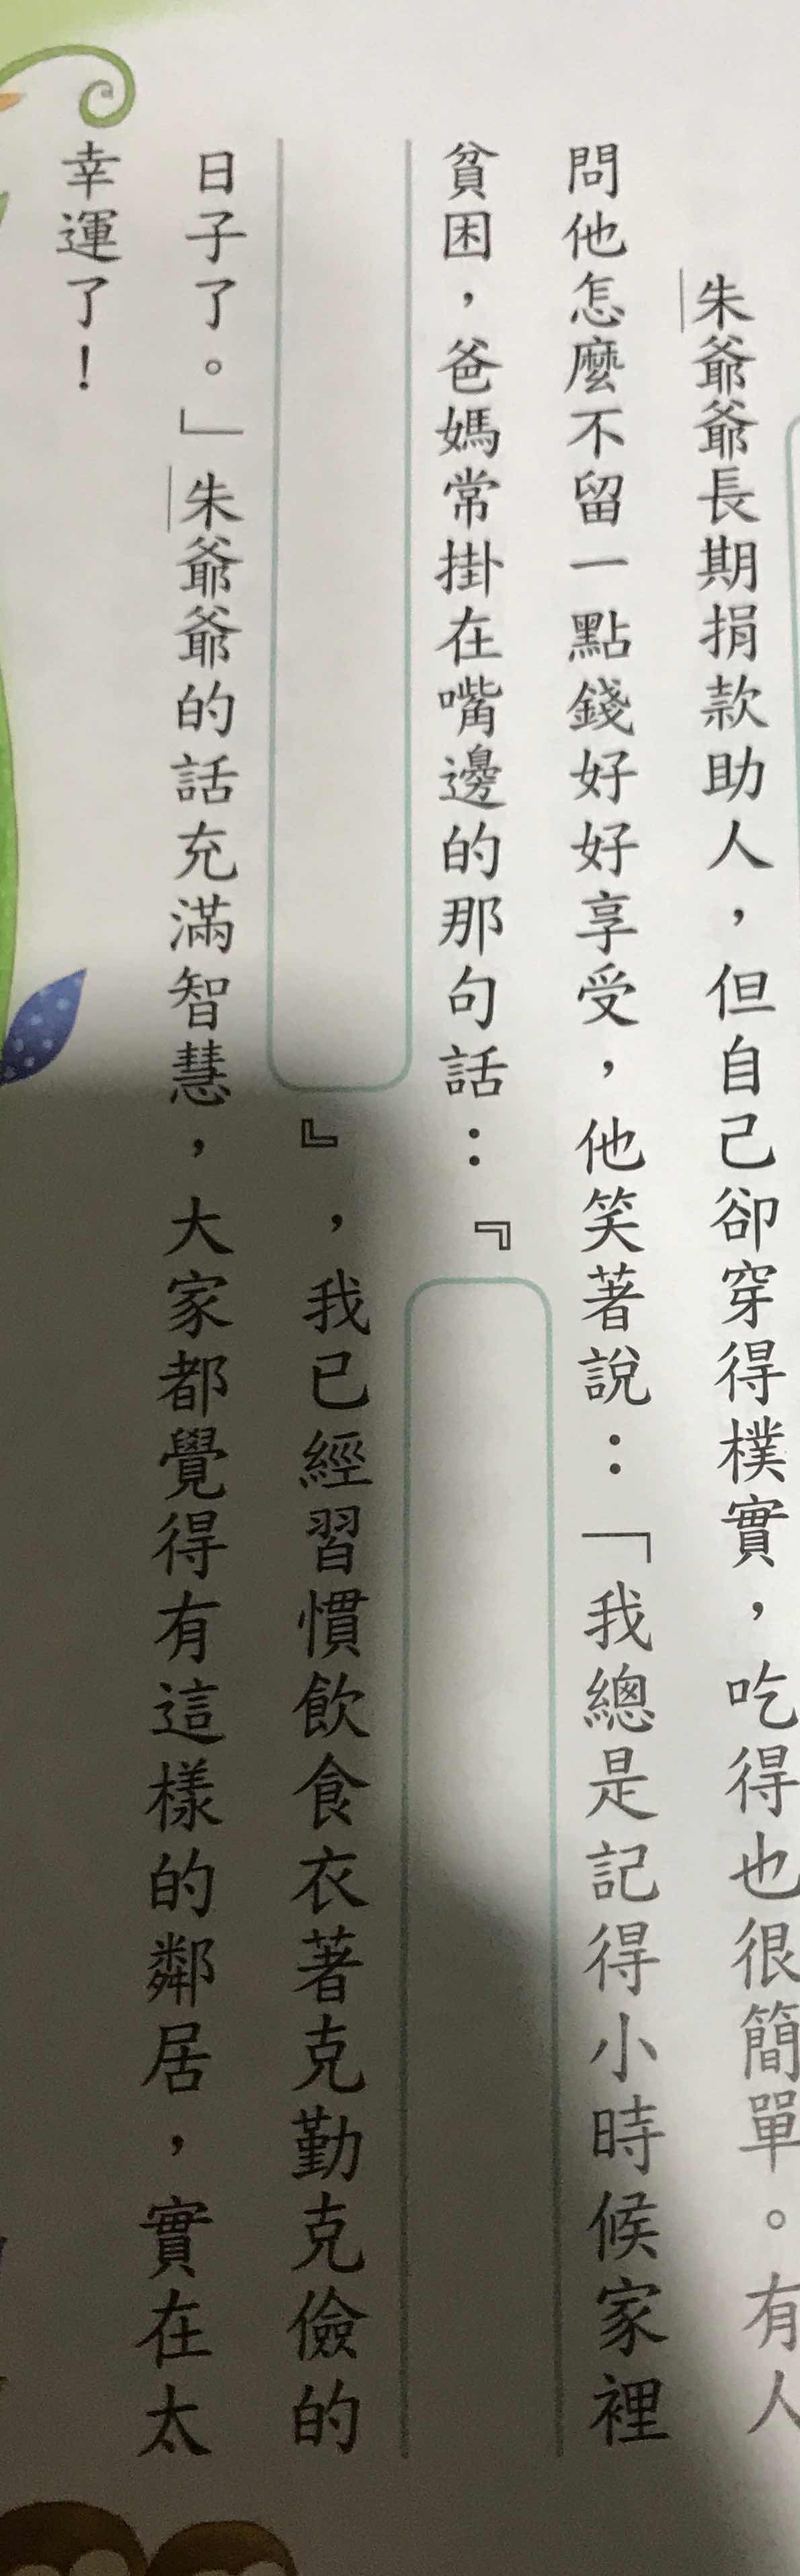 朱爺爺長期捐款助人，但自己卻穿得樸實，吃得也很簡單。有人
問他怎麼不留一點錢好好享受，他笑著說：「我總是記得小時候家裡
貧困，爸媽常掛在嘴邊的那句話：『
』，我已經習慣飲食衣著克勤克儉的
日子了。」朱爺爺的話充滿智慧，大家都覺得有這樣的鄰居，實在太
幸運了！